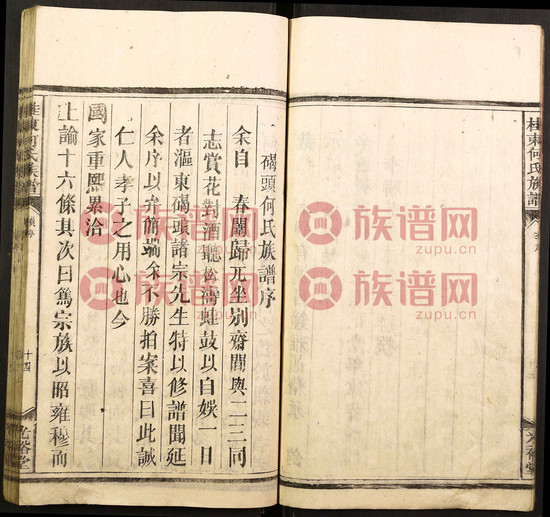 桂東何氏族譜
碣頭何氏族譜序
余自　春闈歸兀坐別齋閒與二三同
志賞花對酒聽松濤蛙鼓以自娛一日
者漚東碣頭諸宗先生特以修譜聞延
余序以弁簡端余不勝拍案喜曰此誠
仁人孝子之用心也今
國家重熙累洽
上諭十六條其次曰篤宗族以昭雍穆而
桂東何氏族譜
十四
族谱网
zupu.cn
族谱网
zupu.cn
族谱网
zupu.cn
族谱网
zupu.cn